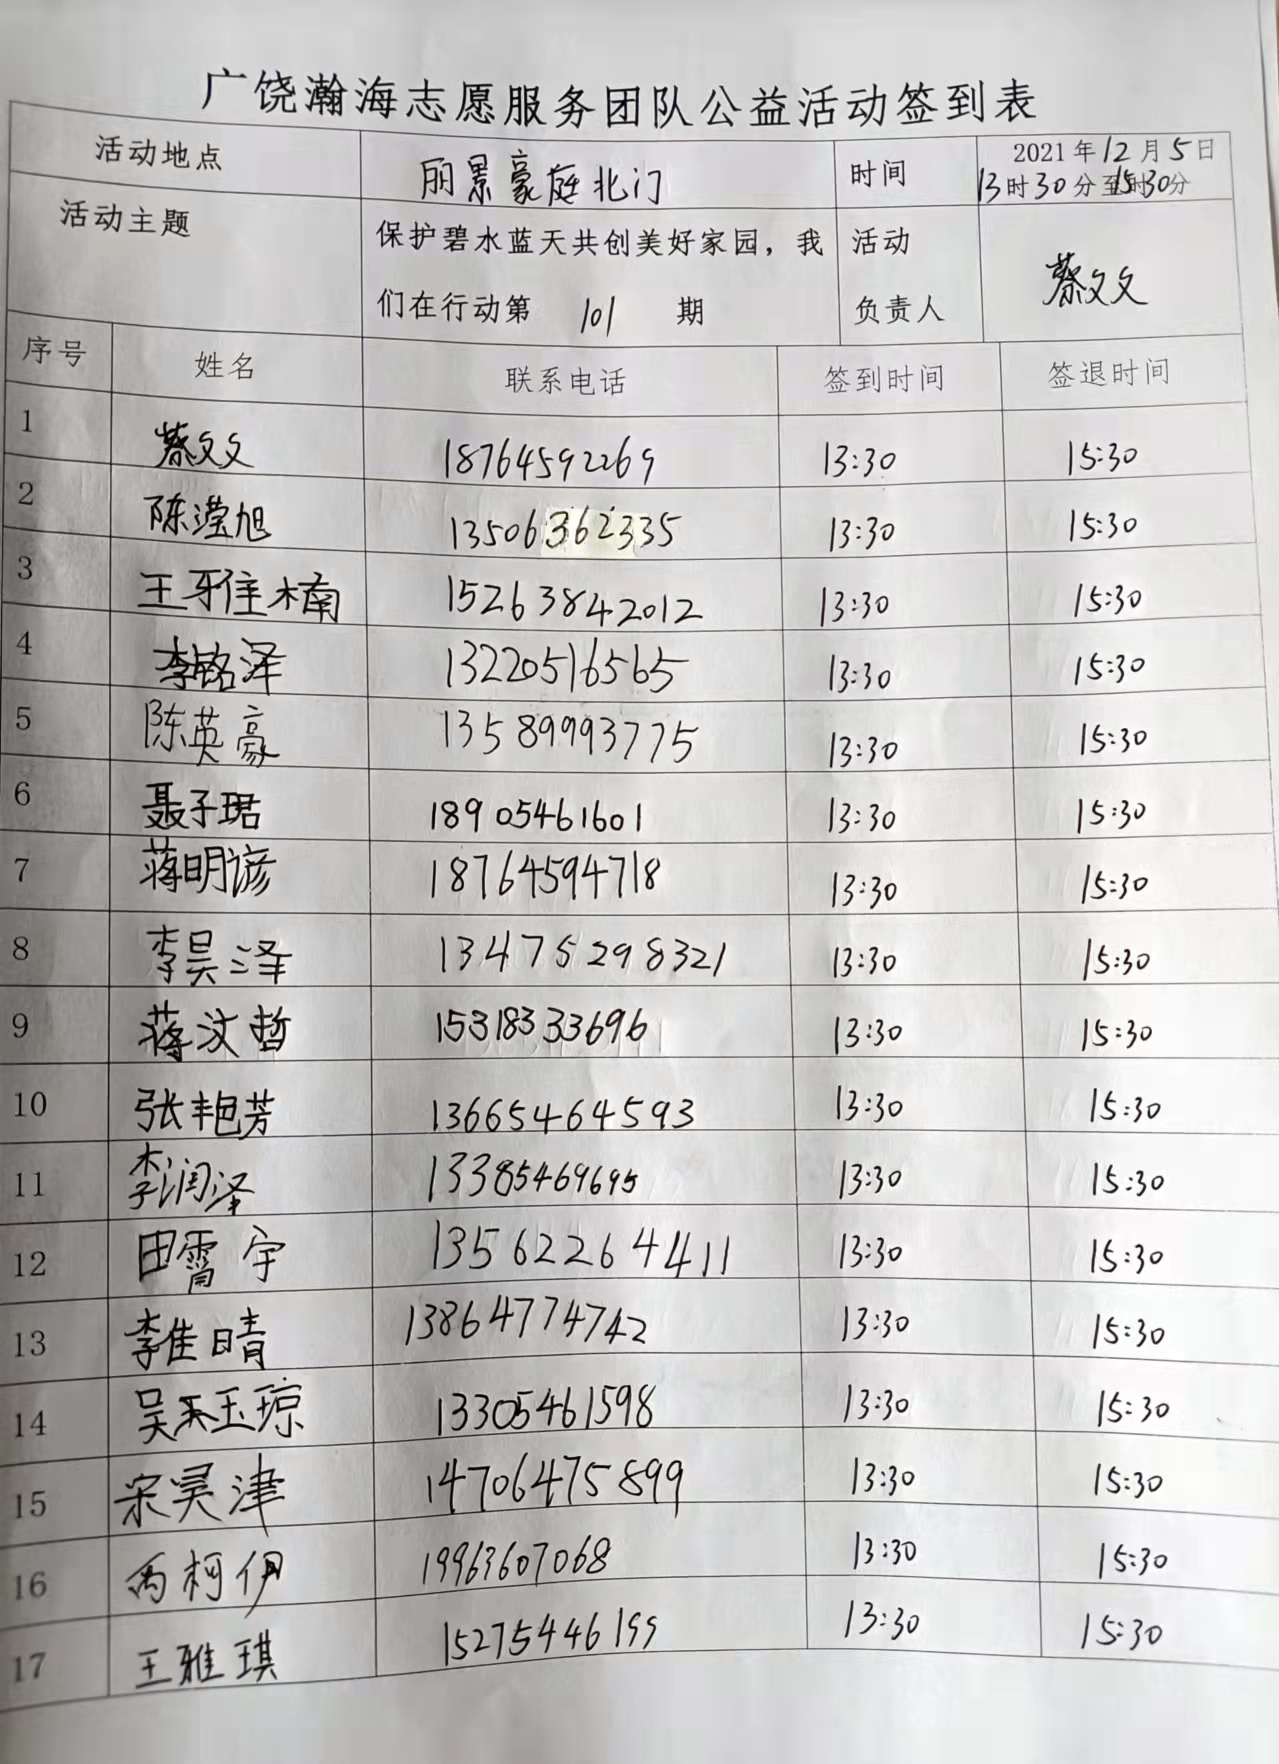 广饶瀚海志愿服务团队公益活动签到表
活动地点 丽景豪庭北门 时间 2021年12月5日
13时30分至15时30分
活动主题 保护碧水蓝天共创美好家园，我 活动
们在行动第 101 期 负责人 蔡文文
序号 姓名 联系电话 签到时间 签退时间
1 蔡文文 18764592269 13:30 15:30
2 陈滢旭 13506362335 13:30 15:30
3 王雅楠 15263842012 13:30 15:30
4 李铭泽 13220516565 13:30 15:30
5 陈英豪 13589993775 13:30 15:30
6 聂子珺 18905461601 13:30 15:30
7 蒋明谚 18764594718 13:30 15:30
8 李昊泽 13475298321 13:30 15:30
9 蒋汶哲 15318333696 13:30 15:30
10 张艳芳 13665464593 13:30 15:30
11 李润泽 13385469695 13:30 15:30
12 田霄宇 13562264411 13:30 15:30
13 李佳晴 13864774742 13:30 15:30
14 吴玉琼 13305461598 13:30 15:30
15 宋昊津 14706475899 13:30 15:30
16 柯伊 19963607068 13:30 15:30
17 王雅琪 15275446199 13:30 15:30